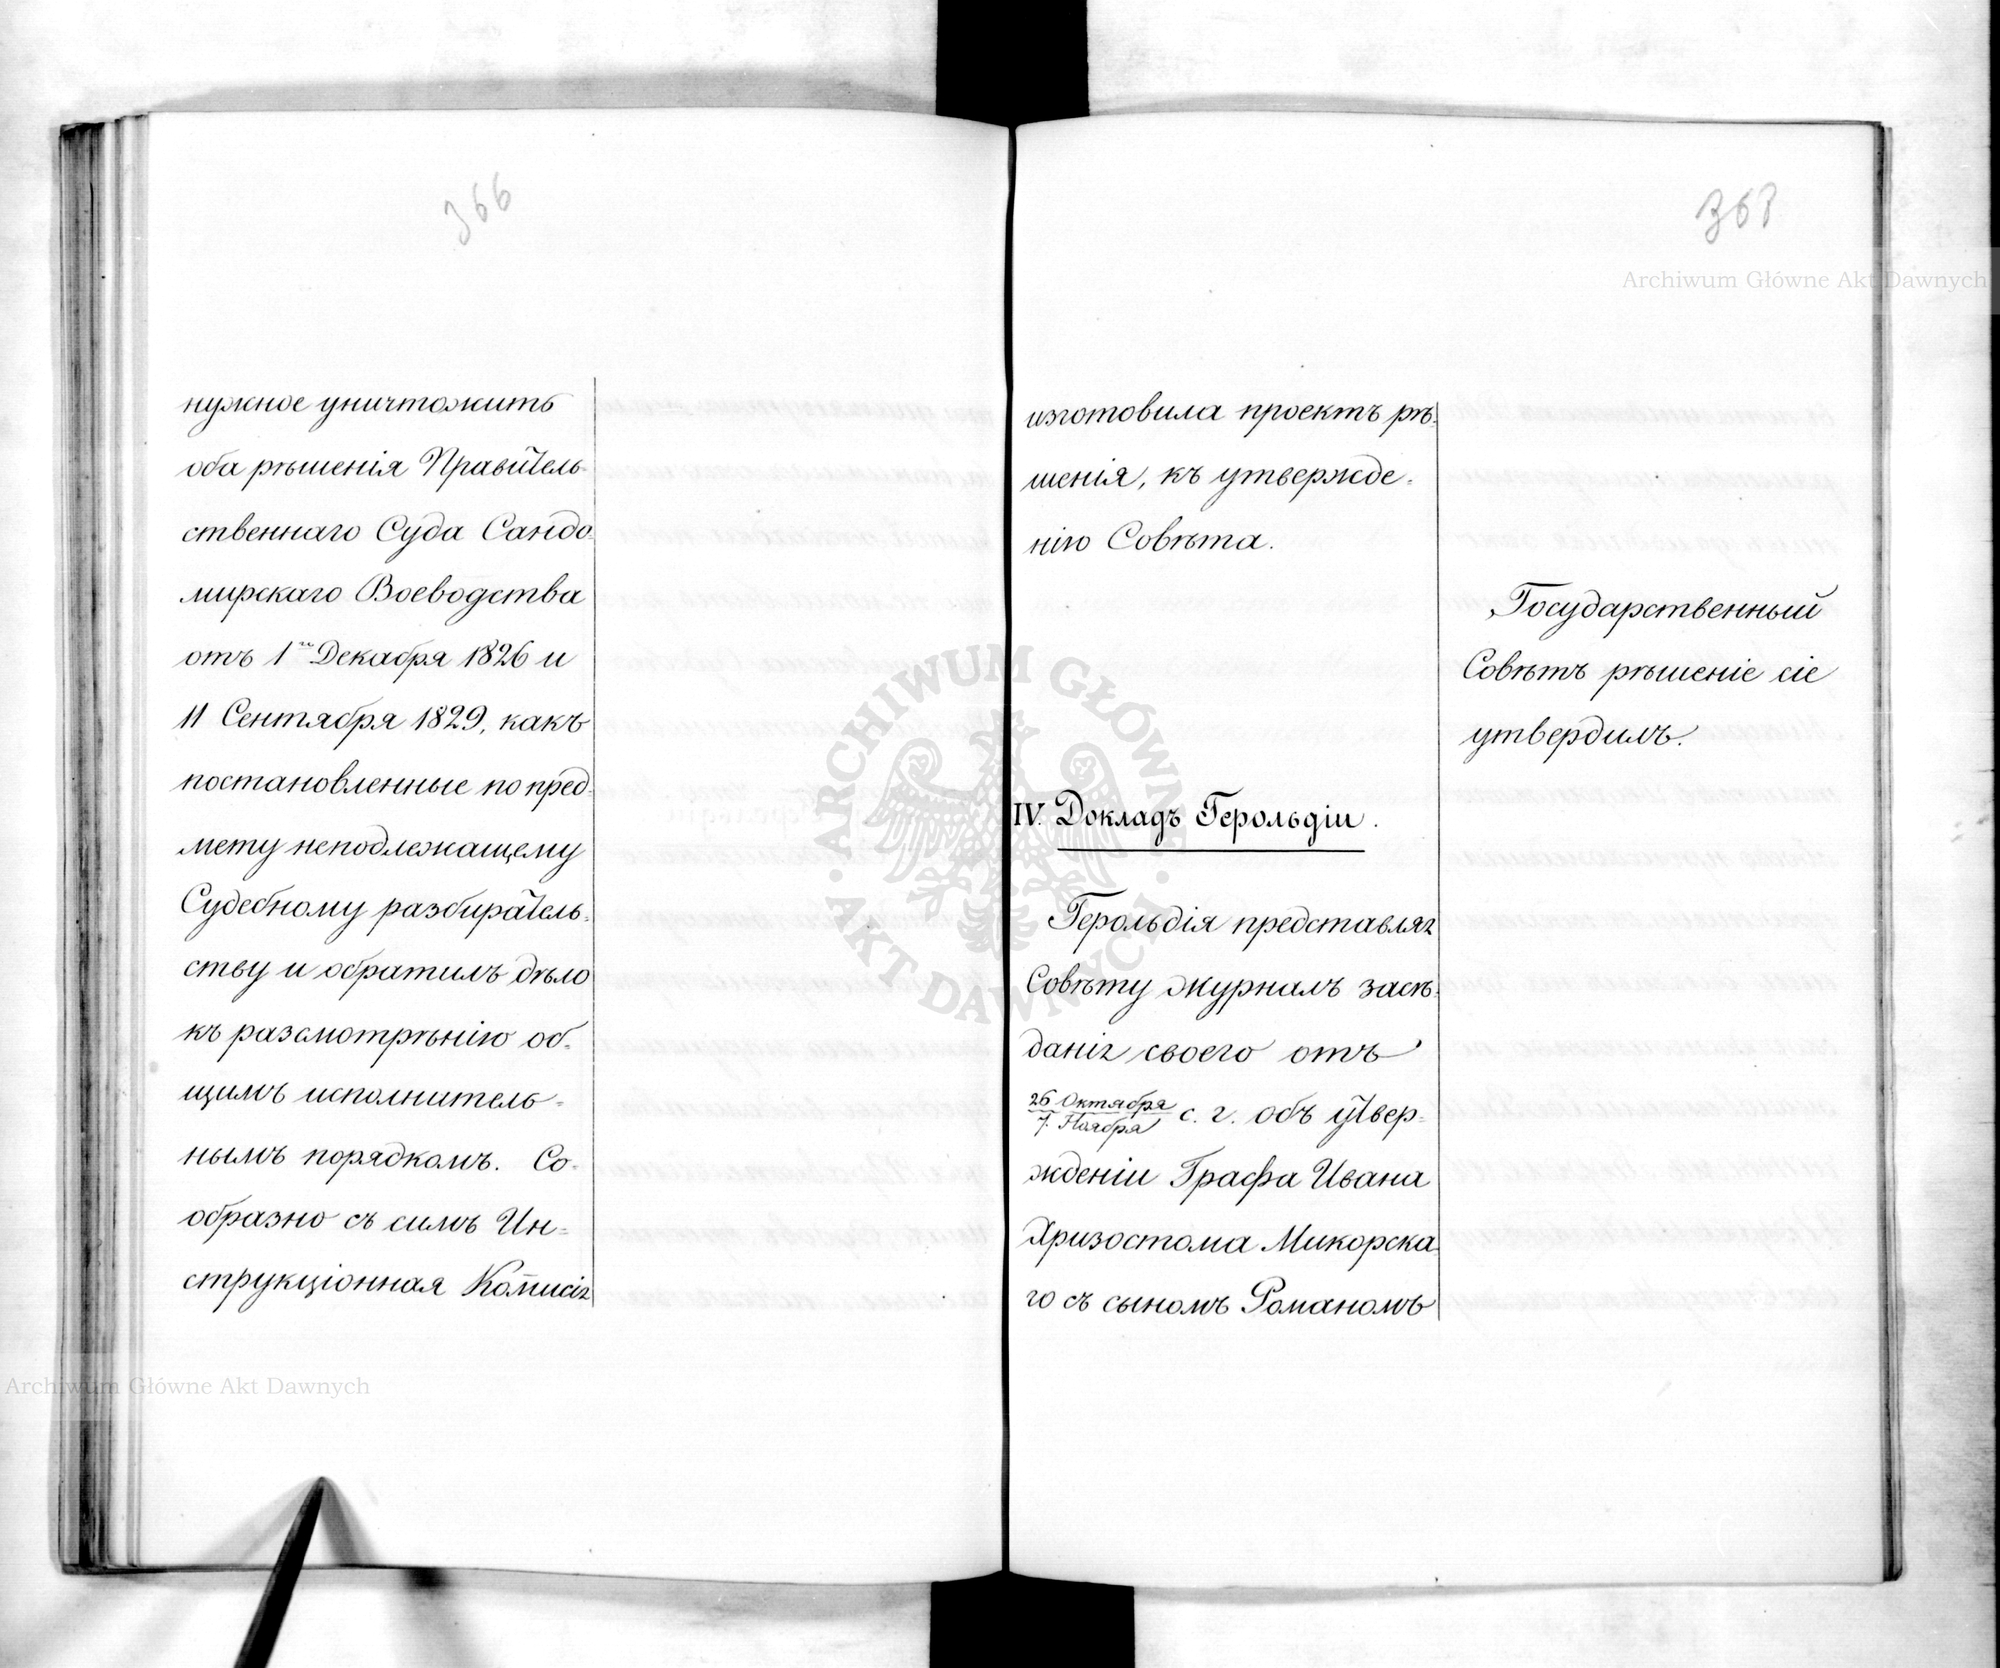 366
нужное уничтожить
оба рѣшенія Правитель-
ственнаго Суда Сандо-
мирскаго Воеводства
отъ 1го Декабря 1826 и
11 Сентября 1829, какъ
постановленные по пред-
мету неподлежащему
Судебному разбиратель-
ству и обратилъ дѣло
къ разсмотрѣнію об-
щимъ исполнитель-
нымъ порядкомъ. Со-
образно съ симъ Ин-
струкціонная Комисія
изготовила проектъ рѣ-
шенія, къ утвержде-
нію Совѣта.
Государственный
Совѣтъ рѣшеніе сіе
утвердилъ.
IV. Докладъ Герольдіи.
Герольдія представляя
Совѣту журналъ засѣ-
данія своего отъ
26 Октября
7. Ноября
с. г. объ утвер-
жденіи Графа Ивана
Хризостома Микорска
го съ сыномъ Романомъ
Archiwum Główne Akt Dawnych
ARCHIWUM GŁÓWNE · AKT DAWNYCH ·
Archiwum Główne Akt Dawnych